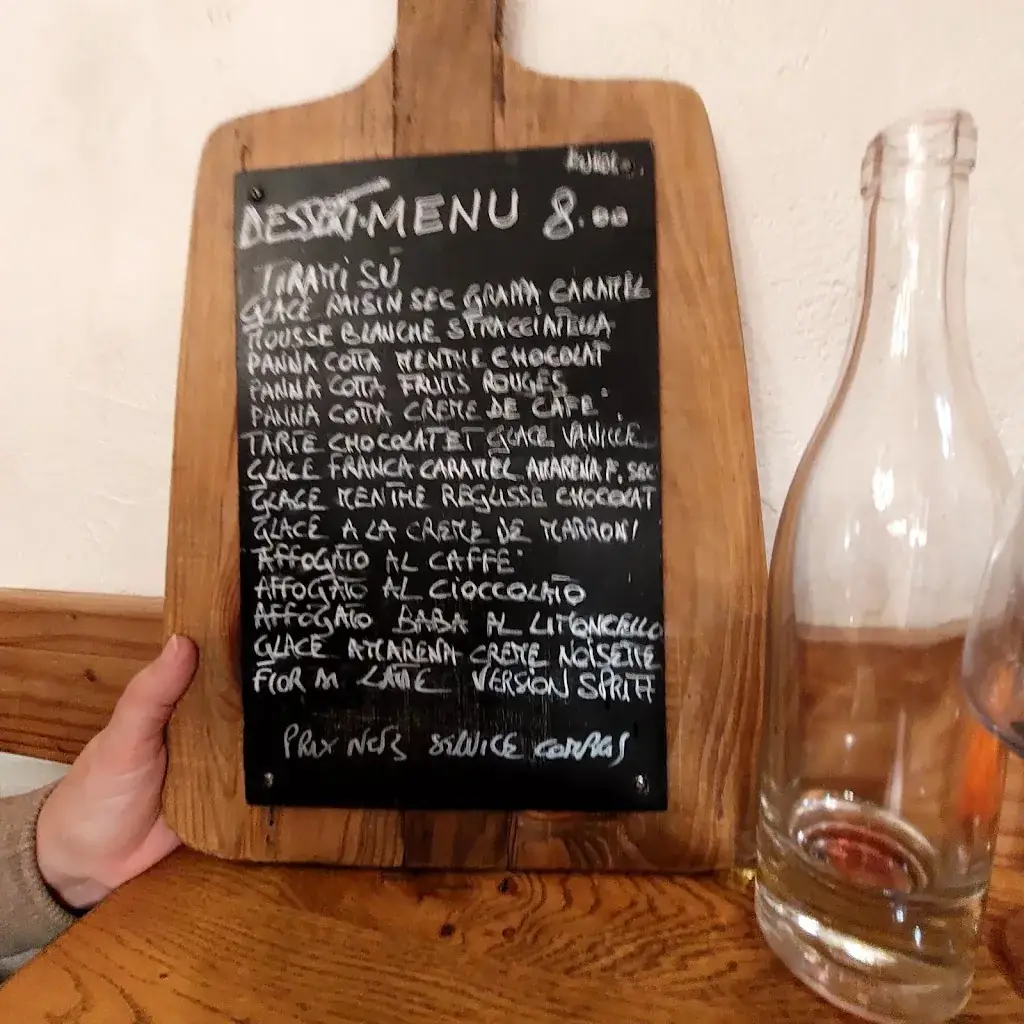 MENU 8.00
TIRAMI SÙ
GLACE RAISIN SEC GRAPPA CARAMEL
MOUSSE BLANCHE STRACCIATELLA
PANNA COTTA MENTHE CHOCOLAT
PANNA COTTA FRUITS ROUGES
PANNA COTTA CREME DE CAFE
TARTE CHOCOLAT ET GLACE VANILLE
GLACE FRANCA CARAMEL AMARENA F. SEC
GLACE MENTHE REGLISSE CHOCOLAT
GLACE A LA CREME DE MARRONI
AFFOGATO AL CAFFE'
AFFOGATO AL CIOCCOLATO
AFFOGATO BABA AL LIMONCELLO
GLACE AMARENA CREME NOISETTE
FIOR DI LATTE VERSION SPRITZ
PRIX NETS SERVICE COMPRIS